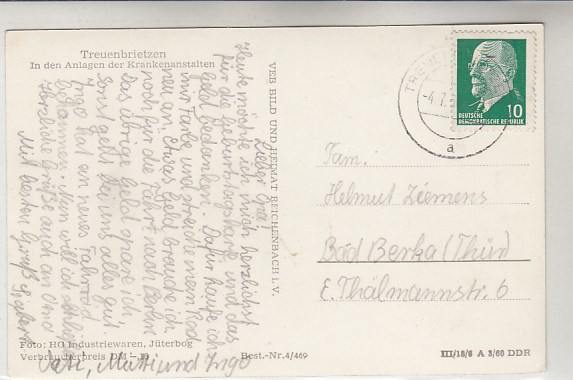 Treuenbrietzen
In den Anlagen der Krankenanstalten
Lieber Opa!
Heute möchte ich mich herzlichst
für die Geburtstagskarte und das
Geld bedanken. Dafür kaufe ich
mir Farbe und streiche mein Rad
neu an. Etwas Geld brauche ich
noch für die Fahrt nach Berlin
Das übrige Geld spare ich.
Sonst geht bei uns alles gut.
Ingo hat ein neues Fahrrad
bekommen. Nun will ich schließen
Herzliche Grüße auch an Oma
Mit besten Gruß
Vati, Mutti und Ingo
Foto: HO Industriewaren, Jüterbog
Verbraucherpreis DM
Best.-Nr. 4/469
VEB BILD UND HEIMAT REICHENBACH I. V.
DEUTSCHE
DEMOKRATISCHE REPUBLIK
10
-4.1.
a
Fam.
Helmut Ziemens
Bad Berka (Thür)
E. Thälmannstr. 6
III/18/6 A 3/60 DDR